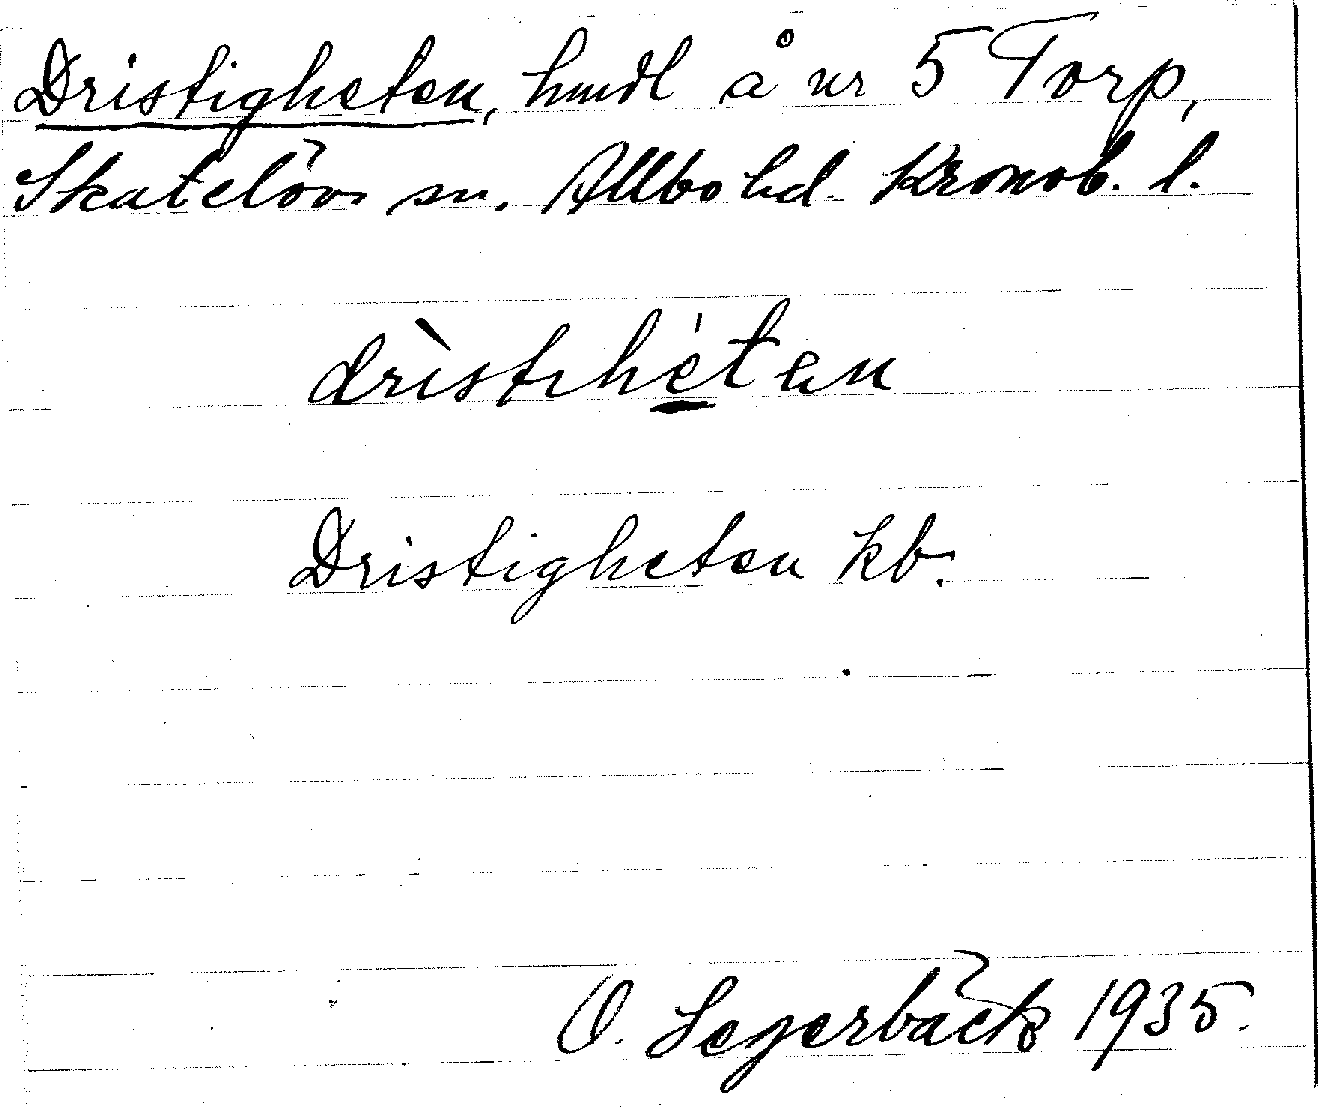 Dristigheten, hmdl å nr 5 Torp,
Skatelövs sn. Allbo hd. Kronob. l.
drìstihétən
Dristigheten kb.
O. Segerbäck 1935.